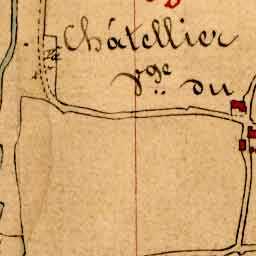 Châtellier
Vge du